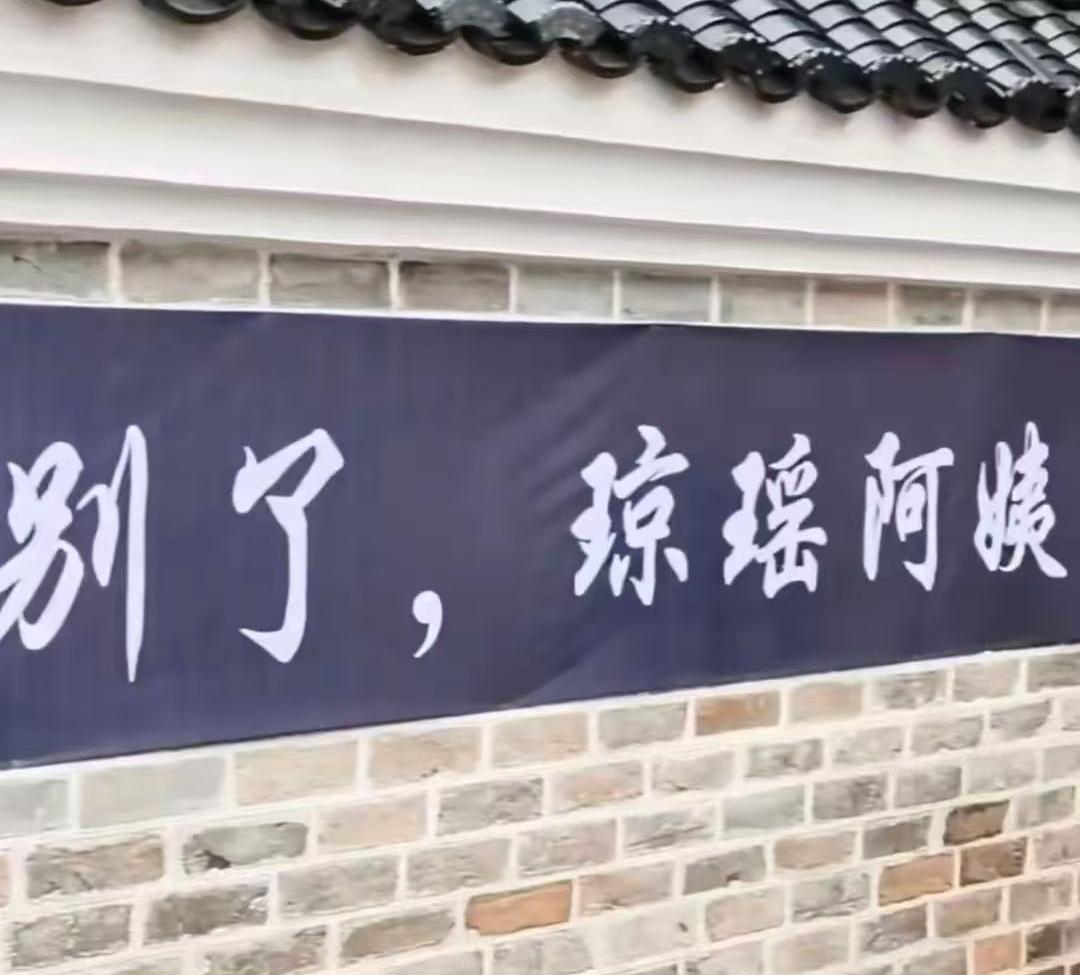 别了，琼瑶阿姨